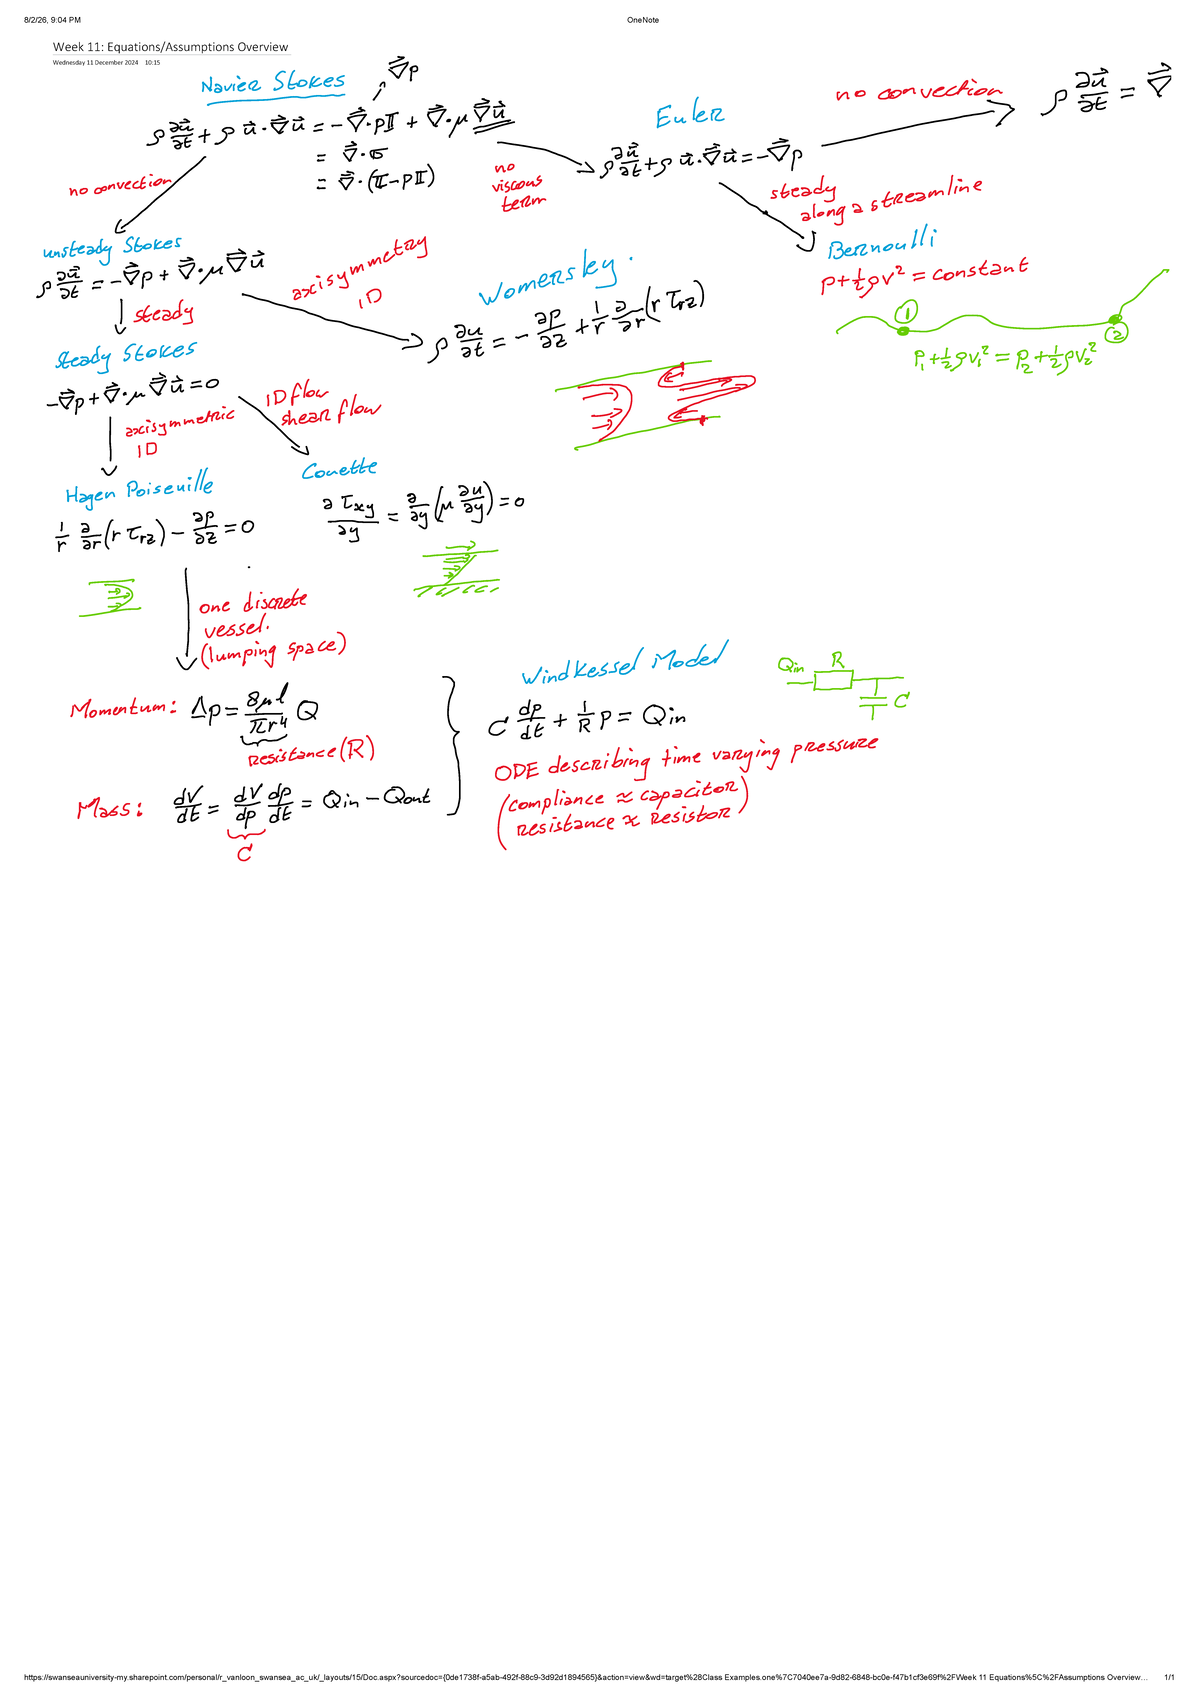 8/2/26, 9:04 PM
OneNote
Week 11: Equations/Assumptions Overview
Wednesday 11 December 2024 10:15
Navier Stokes
∇⃗p
ρ ∂u⃗/∂t + ρ u⃗·∇⃗u⃗ = -∇⃗·pII + ∇⃗·μ∇⃗u⃗
= ∇⃗·σ
= ∇⃗·(π-pII)
no convection
no
viscous
term
Euler
ρ ∂u⃗/∂t + ρ u⃗·∇⃗u⃗ = -∇⃗p
no convection
ρ ∂u⃗/∂t = ∇⃗
steady
along a streamline
Bernoulli
p + ½ρv² = constant
①
②
P₁ + ½ρv₁² = P₂ + ½ρv₂²
unsteady Stokes
ρ ∂u⃗/∂t = -∇⃗p + ∇⃗·μ∇⃗u⃗
axisymmetry
1D
Womersley.
ρ ∂u/∂t = -∂p/∂z + 1/r ∂/∂r (r τrz)
steady
Steady Stokes
-∇⃗p + ∇⃗·μ∇⃗u⃗ = 0
axisymmetric
1D
1D flow
shear flow
Hagen Poiseuille
1/r ∂/∂r (r τrz) - ∂p/∂z = 0
Couette
∂τxy/∂y = ∂/∂y (μ ∂u/∂y) = 0
one discrete
vessel.
(lumping space)
Momentum: Δp = 8μl/πr⁴ Q
Resistance (R)
Mass: dV/dt = dV/dp dp/dt = Qin - Qout
C
Windkessel Model
C dp/dt + 1/R p = Qin
ODE describing time varying pressure
(compliance ≈ capacitor)
(resistance ≈ resistor)
Qin R
C
https://swanseauniversity-my.sharepoint.com/personal/r_vanloon_swansea_ac_uk/_layouts/15/Doc.aspx?sourcedoc={0de1738f-a5ab-492f-88c9-3d92d1894565}&action=view&wd=target%28Class Examples.one%7C7040ee7a-9d82-6848-bc0e-f47b1cf3e69f%2FWeek 11 Equations%5C%2FAssumptions Overview…
1/1